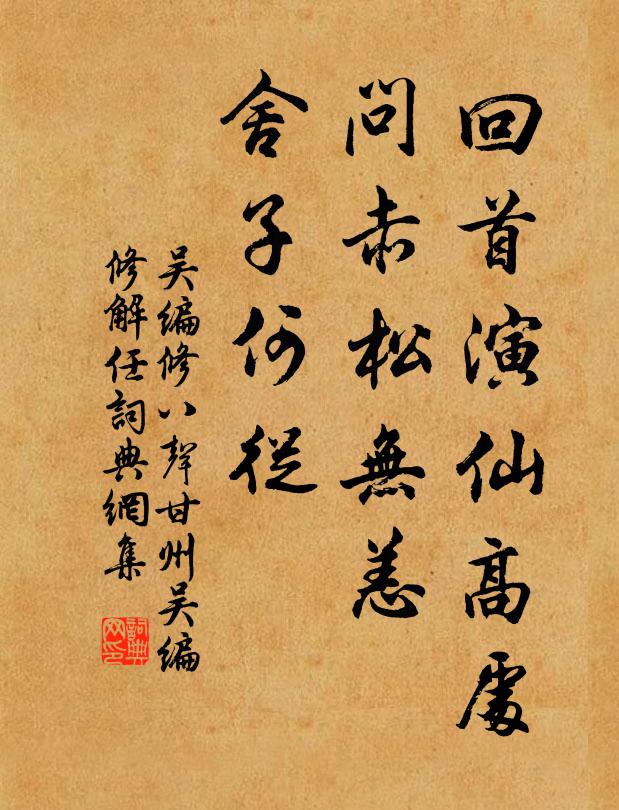 回首演仙高處
問赤松無恙
舍子何從
吴編修八聲甘州吴編
修解任詞典網集
詞典網印